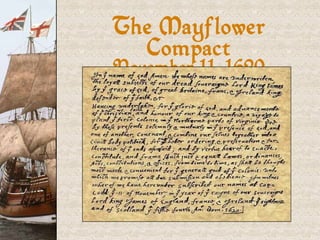 The Mayflower
Compact
November 11, 1620
In yᵉ name of god Amen. We whose names are underwriten,
the loyall subjects of our dread soveraigne Lord King James
by yᵉ grace of god, of great Britaine, franc, & Ireland king,
defender of yᵉ faith, &c.
Haveing undertaken, for yᵉ glorie of god, and advancemente
of yᵉ christian faith and honour of our king & countrie, a voyage to
plant yᵉ first colonie in yᵉ Northerne parts of Virginia. doe
by these presents solemnly & mutualy in yᵉ presence of god, and
one of another, covenant, & combine our selves togeather into a
civill body politick; for our better ordering, & preservation & fur=
therance of yᵉ ends aforesaid; and by vertue hearof to enacte,
constitute, and frame shuch just & equall Lawes, ordinances,
Acts, constitutions, & offices, from time to time, as shall be thought
most meete & convenient for yᵉ generall good of yᵉ colonie: unto
which we promise all due submission and obedience. In witnes
wherof we have hereunder subscribed our names at Cap=
Codd yᵉ .11. of November, in yᵉ year of yᵉ raigne of our soveraigne
Lord king James of England, france, & Ireland yᵉ eighteenth
and of Scotland yᵉ fiftie fourth. Anᵒ: Dom. 1620.